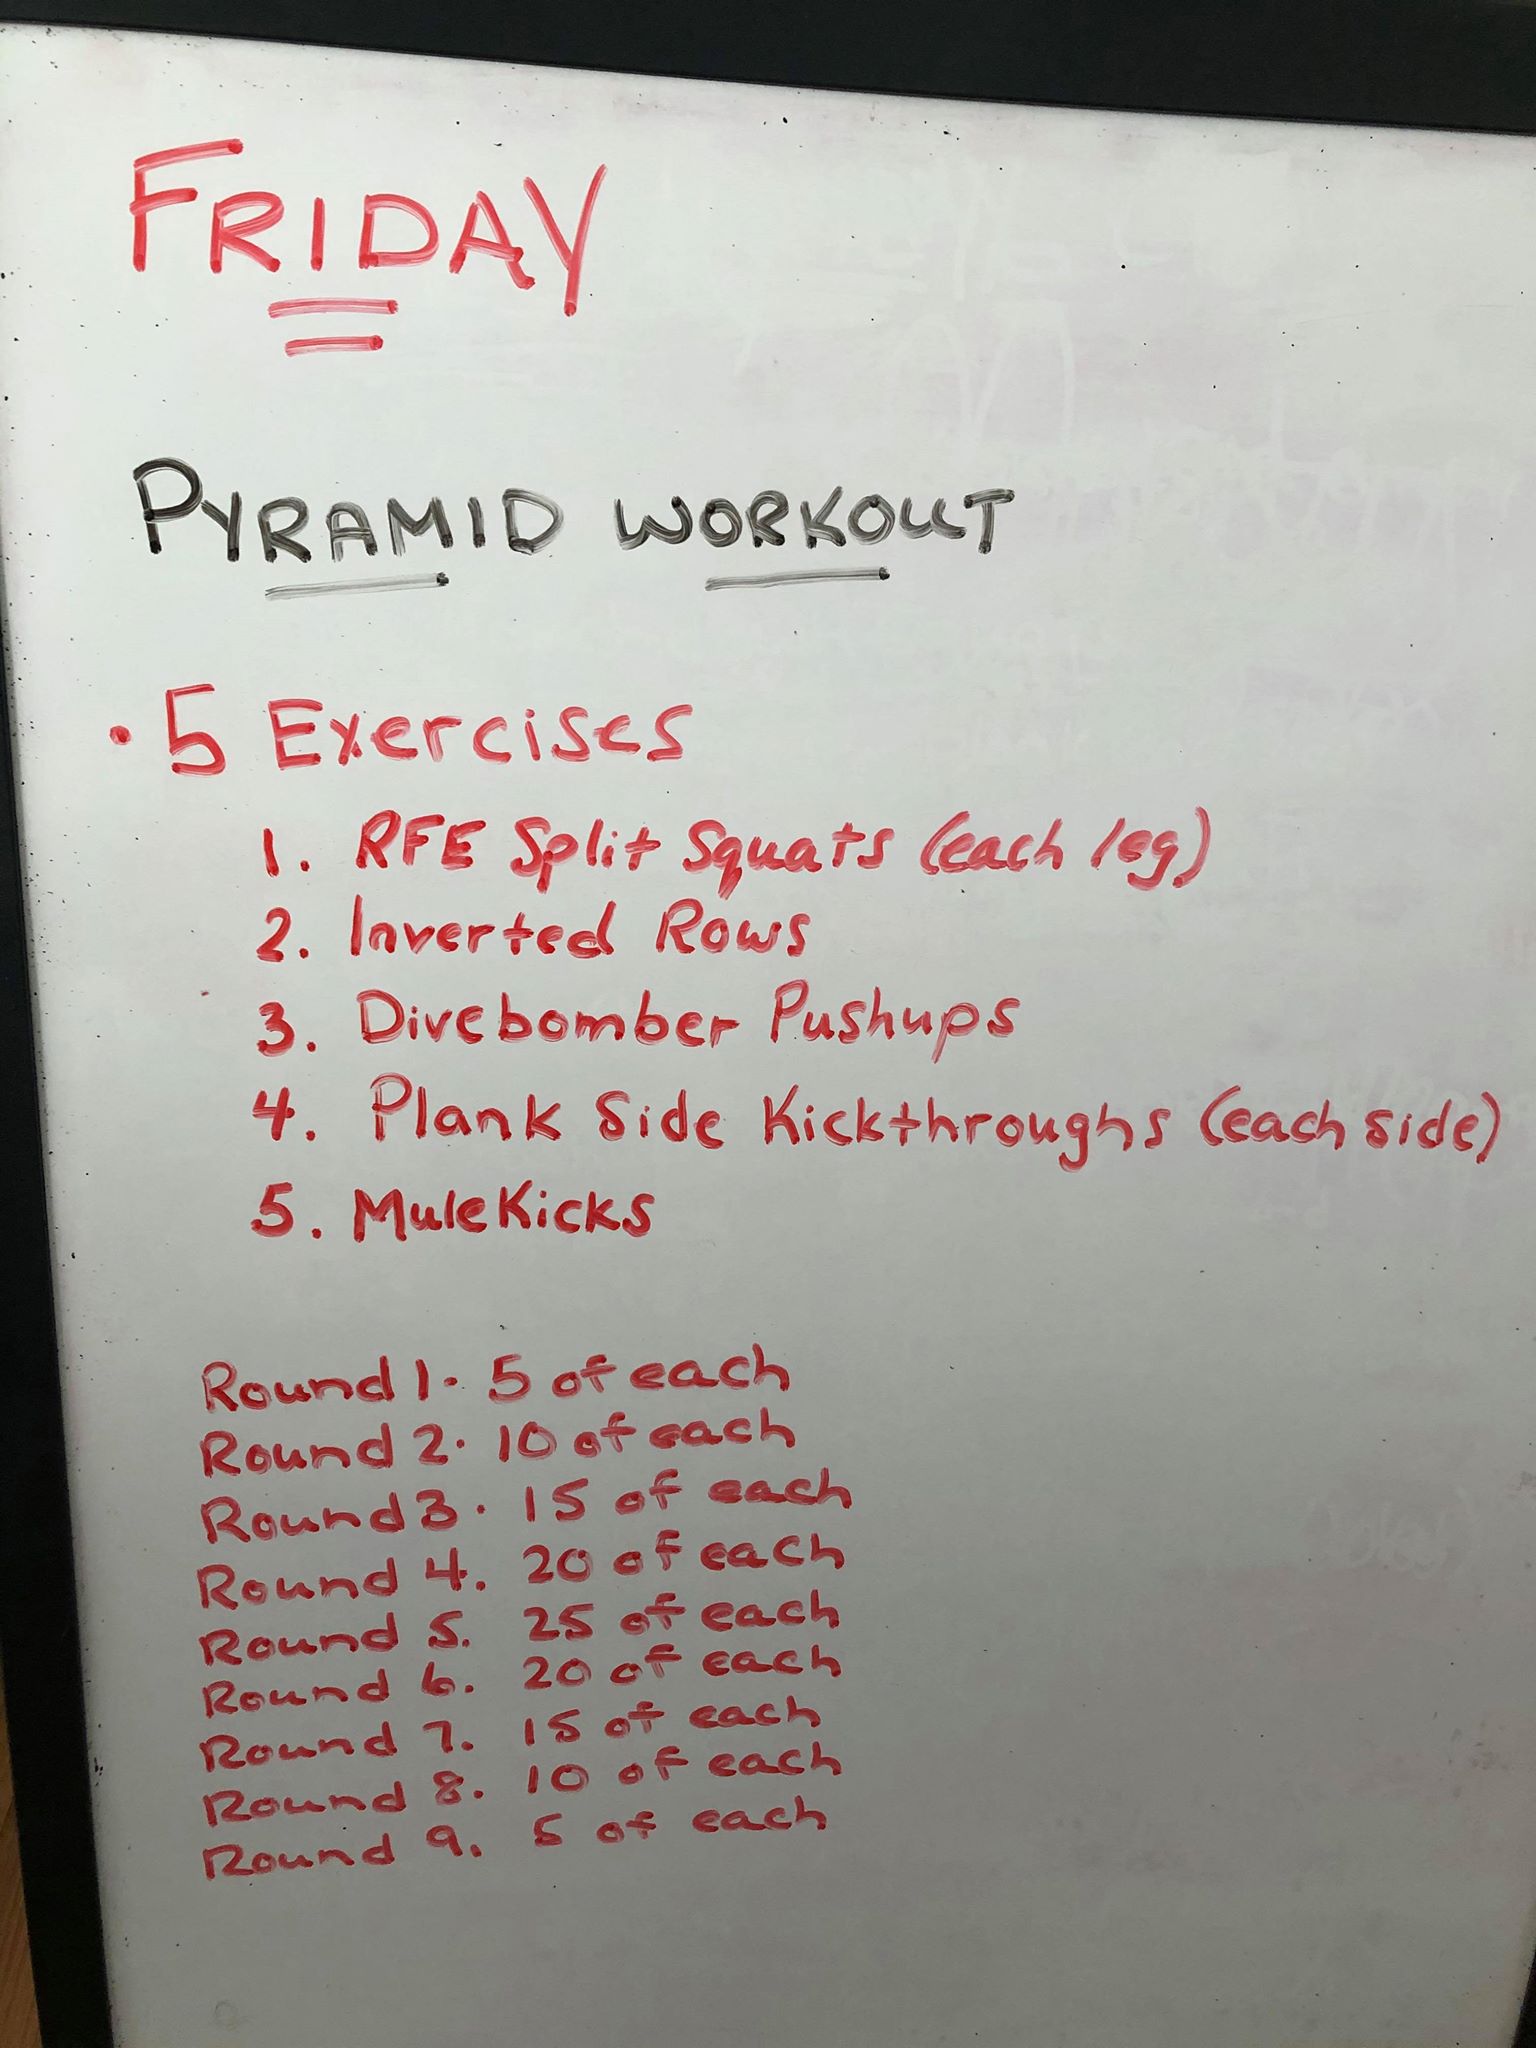 FRIDAY
PYRAMID WORKOUT
• 5 Exercises
1. RFE Split Squats (each leg)
2. Inverted Rows
3. Divebomber Pushups
4. Plank Side Kickthroughs (each side)
5. MuleKicks
Round 1. 5 of each
Round 2. 10 of each
Round 3. 15 of each
Round 4. 20 of each
Round 5. 25 of each
Round 6. 20 of each
Round 7. 15 of each
Round 8. 10 of each
Round 9. 5 of each